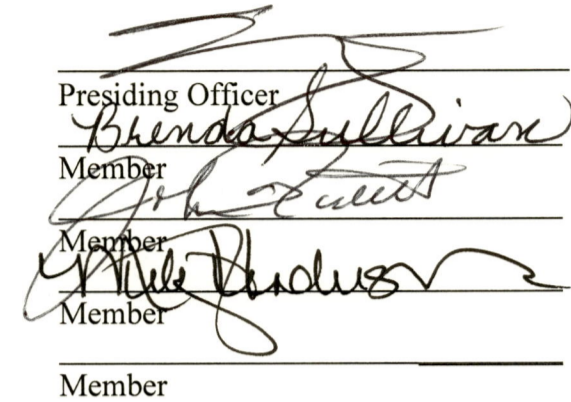 Presiding Officer
Brenda Sullivan
Member
John
Member
Mike Henderson
Member
Member